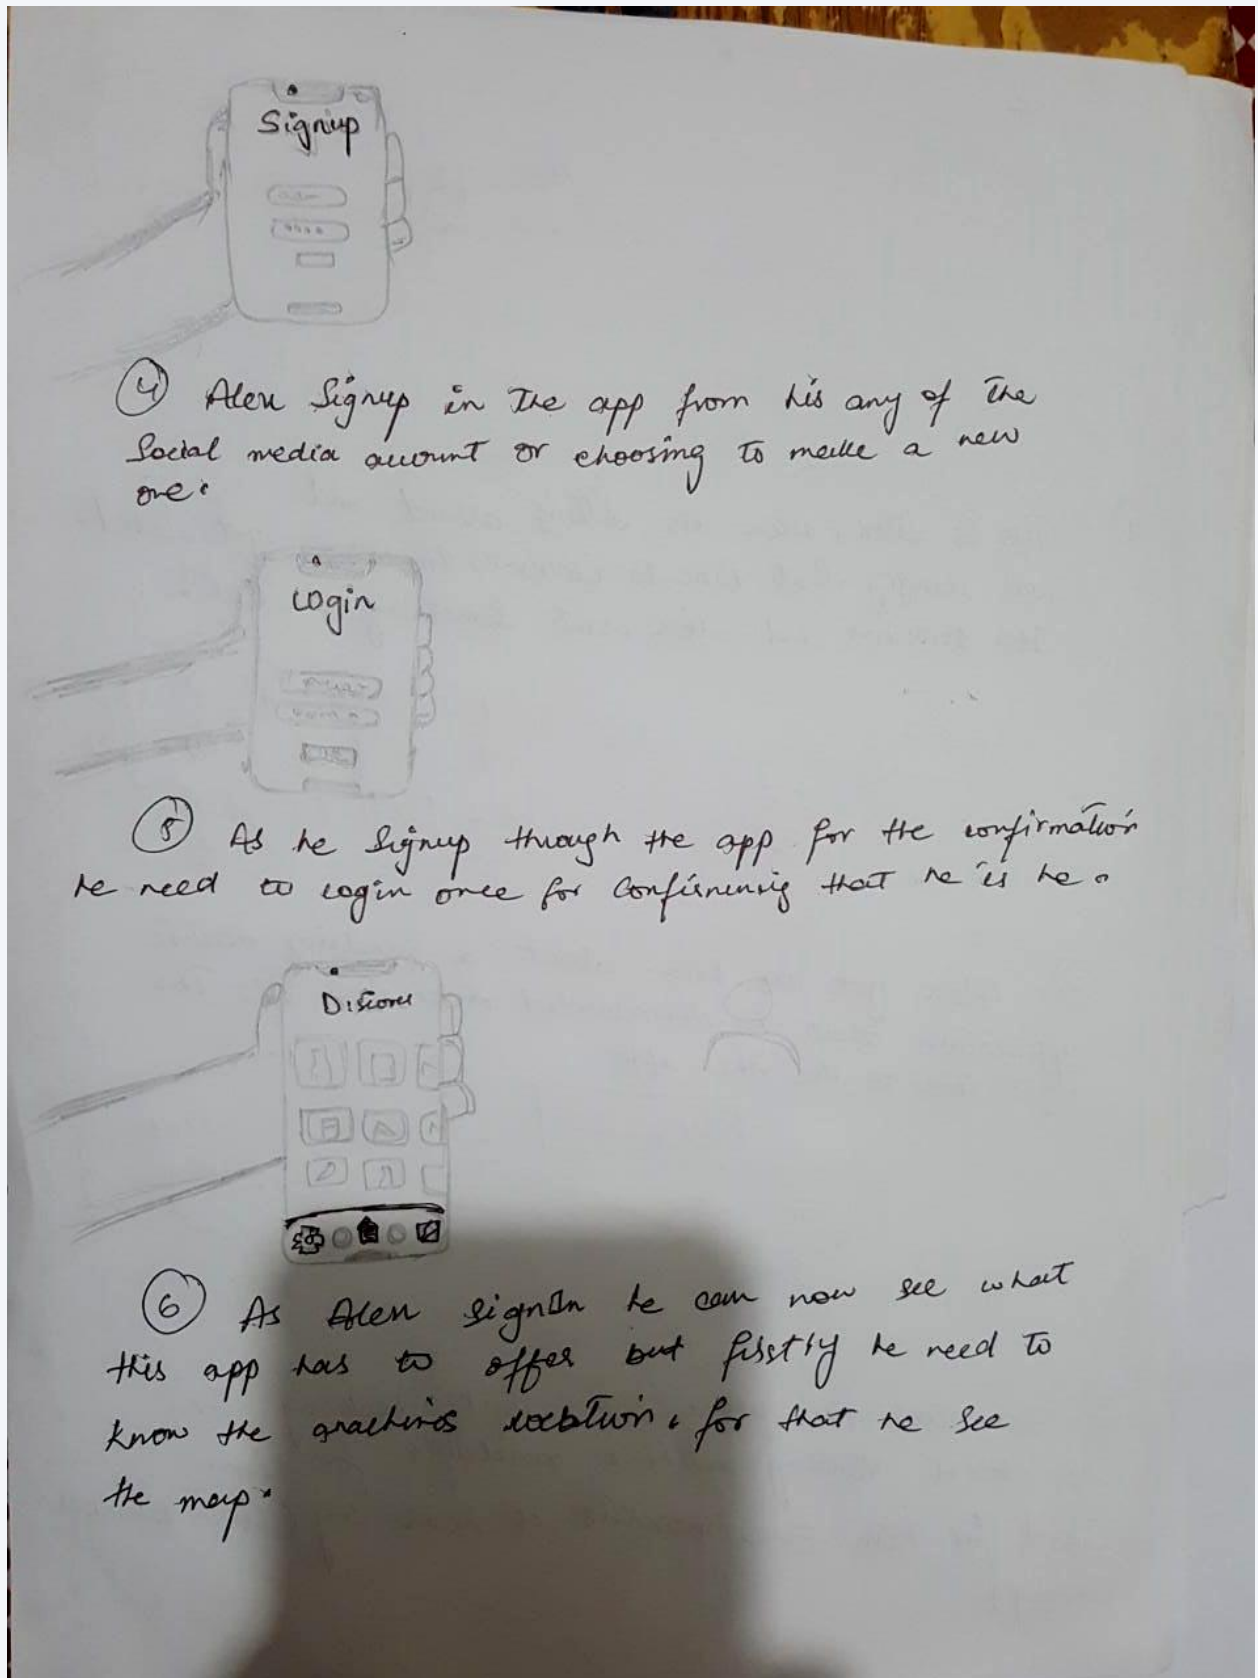 Signup
④ Alex Signup in The app from his any of The
Social media account or choosing to make a new
one.
Login
⑤ As he Signup through the app for the confirmation
he need to login once for that he is he.
Discover
⑥ As Alex signIn he can now see what
this app has to offer but firstly he need to
know the machines location. for that he see
the map.